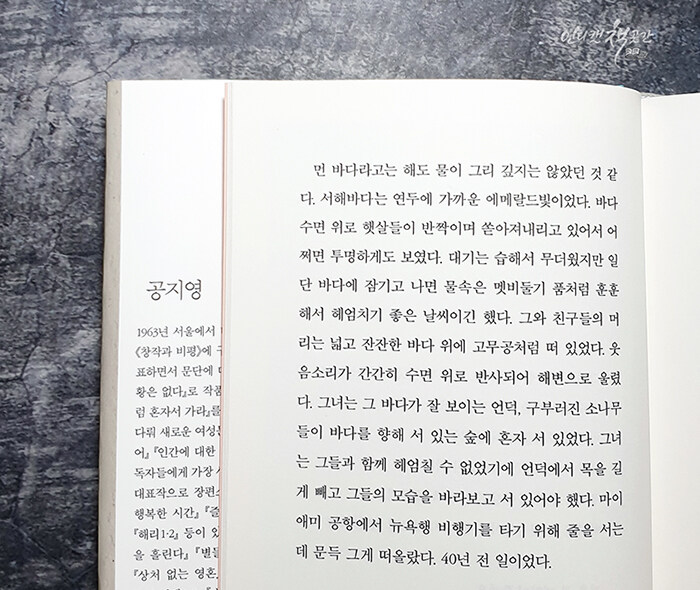 인디캣책곳간
공지영
1963년 서울에서
《창작과 비평》에
표하면서 문단에
황은 없다』로 작품
럼 혼자서 가라』를
다뤄 새로운 여성
어』『인간에 대한
독자들에게 가장
대표작으로 장편소
행복한 시간』『즐
『해리1·2』 등이 있
을 흘린다』『별들
『상처 없는 영혼
먼 바다라고는 해도 물이 그리 깊지는 않았던 것 같
다. 서해바다는 연두에 가까운 에메랄드빛이었다. 바다
수면 위로 햇살들이 반짝이며 쏟아져내리고 있어서 어
쩌면 투명하게도 보였다. 대기는 습해서 무더웠지만 일
단 바다에 잠기고 나면 물속은 멧비둘기 품처럼 훈훈
해서 헤엄치기 좋은 날씨이긴 했다. 그와 친구들의 머
리는 넓고 잔잔한 바다 위에 고무공처럼 떠 있었다. 웃
음소리가 간간히 수면 위로 반사되어 해변으로 울렸
다. 그녀는 그 바다가 잘 보이는 언덕, 구부러진 소나무
들이 바다를 향해 서 있는 숲에 혼자 서 있었다. 그녀
는 그들과 함께 헤엄칠 수 없었기에 언덕에서 목을 길
게 빼고 그들의 모습을 바라보고 서 있어야 했다. 마이
애미 공항에서 뉴욕행 비행기를 타기 위해 줄을 서는
데 문득 그게 떠올랐다. 40년 전 일이었다.